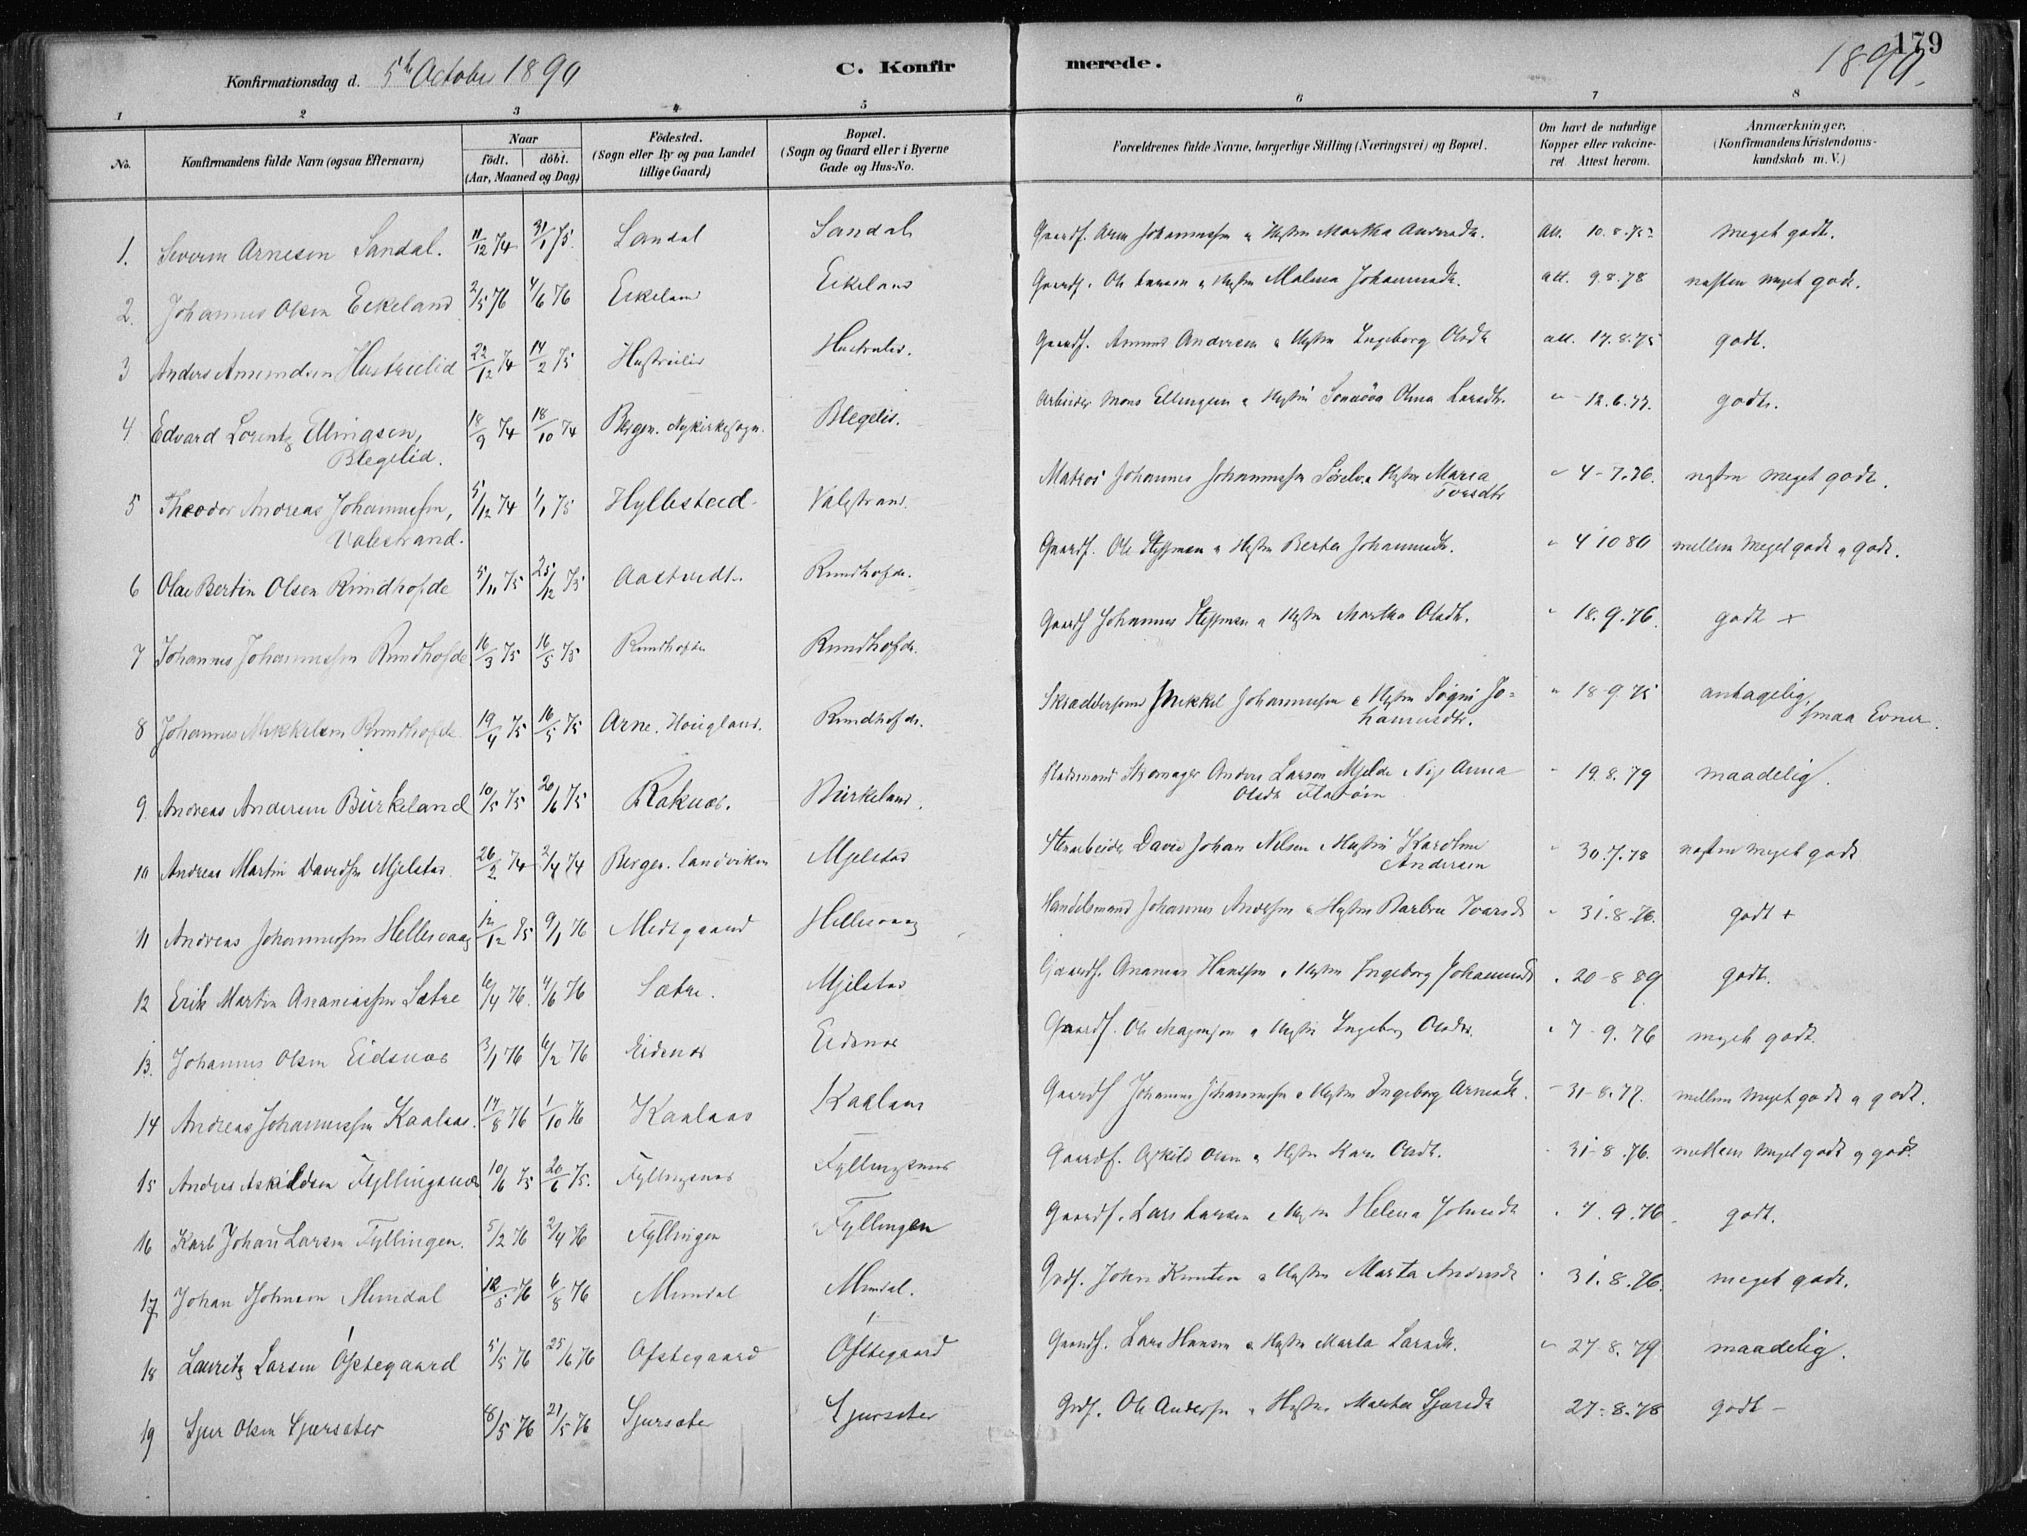 179
Konfirmationsdag d. 5th October 1890 C. Konfirmerede. 1890.
1 2 3 4 5 6 7 8
No. Konfirmandens fulde Navn (ogsaa Efternavn) Naar födt. döbt. (Aar, Maaned og Dag) Födested. (Sogn eller By og paa Landet tillige Gaard) Bopæl. (Sogn og Gaard eller i Byerne Gade og Hus-No. Forældrenes fulde Navne, borgerlige Stilling (Næringsvei) og Bopæl. Om havt de naturlige Kopper eller vakcineret Attest herom. Anmærkninger. (Konfirmandens Kristendomskundskab m. V.)
1. Severin Arnesen Sandal. 11/12 74 31/1 75. Sandal Sandal Gaardf. Arne Johannessen & Hustru Martha Andersdtr. att. 10.8.75 meget godt.
2. Johannes Olsen Eikeland 2/5 76 4/6 76 Eikeland Eikeland Gaardf. Ole Larsen & Hustru Malena Johannesdtr. att. 9.8.78 næsten meget godt.
3 Anders Amundsen Hustrulid 22/12 74 14/2 75 Hustrulid Hustrulid. Gaardf. Amund Andersen & Hustru Ingeborg Olsdtr att. 17.8.75 godt.
4. Edvard Lorentz Ellingsen, Blegelid. 18/9 74 18/10 74 Bergen. Nykirkesogn. Blegelid. Arbeider Mons Ellingsen & Hustru Olina Larsdtr. " 12.6.77. godt.
5 Theodor Andreas Johannessen, Valestrand. 5/12 74 1/1 75 Hyllestad. Valestrand. Matros Johannes Johannessen & Hustru Maria " 4-7.76. næsten meget godt.
6 Olai Bertin Olsen Rundhofde 5/11 75 25/12 75 Aastvedt. Rundhofde. Gaardf. Ole Steffensen & Hustru Berta Johannesdtr. " 4 10 80 mellem meget godt & godt.
7 Johannes Johannessen Rundhofde 16/3 75 16/5 75 Rundhofde Rundhofde. Gaardf Johannes Steffensen & Hustru Martha Olsdtr. " 18.9.76. godt +
8 Johannes Mikkelsen Rundhofde 19/4 75 16/5 75 Arne. Hougland. Rundhofde. Mikkel Johannessen & Hustru Signi Johannesdtr. " 18-9.75 antagelig, smaa Evner.
9. Andreas Andersen Birkeland 10/5 75 20/6 75 Roknæs. Birkeland. Pladsmand Skomager Anders Larsen Mjelde & Anna Olsdtr " 19.8.79 maadelig.
10 Andreas Martin Davidsen Mjelstad. 26/2 74 2/4 74 Bergen. Sandviken Mjelstad Stenarbeider David Johan Nilsen & Hustru Karoline Andersen " 30.7.78 næsten meget godt
11 Andreas Johannessen Hellesvaag 12/12 75 9/1 76 Midtgaard Hellesvaag Handelsmand Johannes Andersen & Hustru Barbra Ivarsdtr " 31.8.76. godt +
12 Erik Martin Ananiassen Sætre 6/4 76. 4/6 76 Sætre. Mjelstad Gaardf. Ananias Hanssen & Hustru Ingeborg Johannesdtr " 20-8 89 godt.
13. Johannes Olsen Eidsnæs 3/1 76 6/2 76 Eidsnæs Eidsnæs Gaardf. Ole Magnesen & Hustru Ingeborg Olsdtr. " 7-9.76 meget godt.
14 Andreas Johannessen Kaalaas. 17/8 76 1/10 76 Kaalaas Kaalaas Gaardf Johannes Johannessen & Hustru Ingeborg Arnesdtr. " 31-8.77. mellem meget godt & godt.
15 Anders Askildsen Fyllingsnæs 10/6 75 20/6 75. Fyllingsnæs Fyllingsnæs Gaardf. Askild Olsen & Hustru Kari Olsdtr. " 31-8.76. mellem meget godt & godt.
16 Karl Johan Larsen Fyllingen. 5/2 76 2/4 76 Fyllingen Fyllingen Gaardf. Lars Larsen & Hustru Helena Johnsdtr " 7.9.76. godt.
17. Johan Johnsen Mundal 12/5 76 6/8 76 Mundal Mundal. Grdf. John Knutsen & Hustru Marta Andersdtr " 31.8.76. meget godt.
18 Lauritz Larsen Øfstegaard 5/5 76 25/6 76 Øfstegaard Øfstegaard Gaardf. Lars Hansen & Hustru Marta Larsdtr. " 27-8.79 maadelig.
19 Sjur Olsen Sjursæter 8/5 76 21/5 76 Sjursæter Sjursæter Grdf. Ole Andersen & Hustru Martha Sjursdtr 27-8.78 godt -